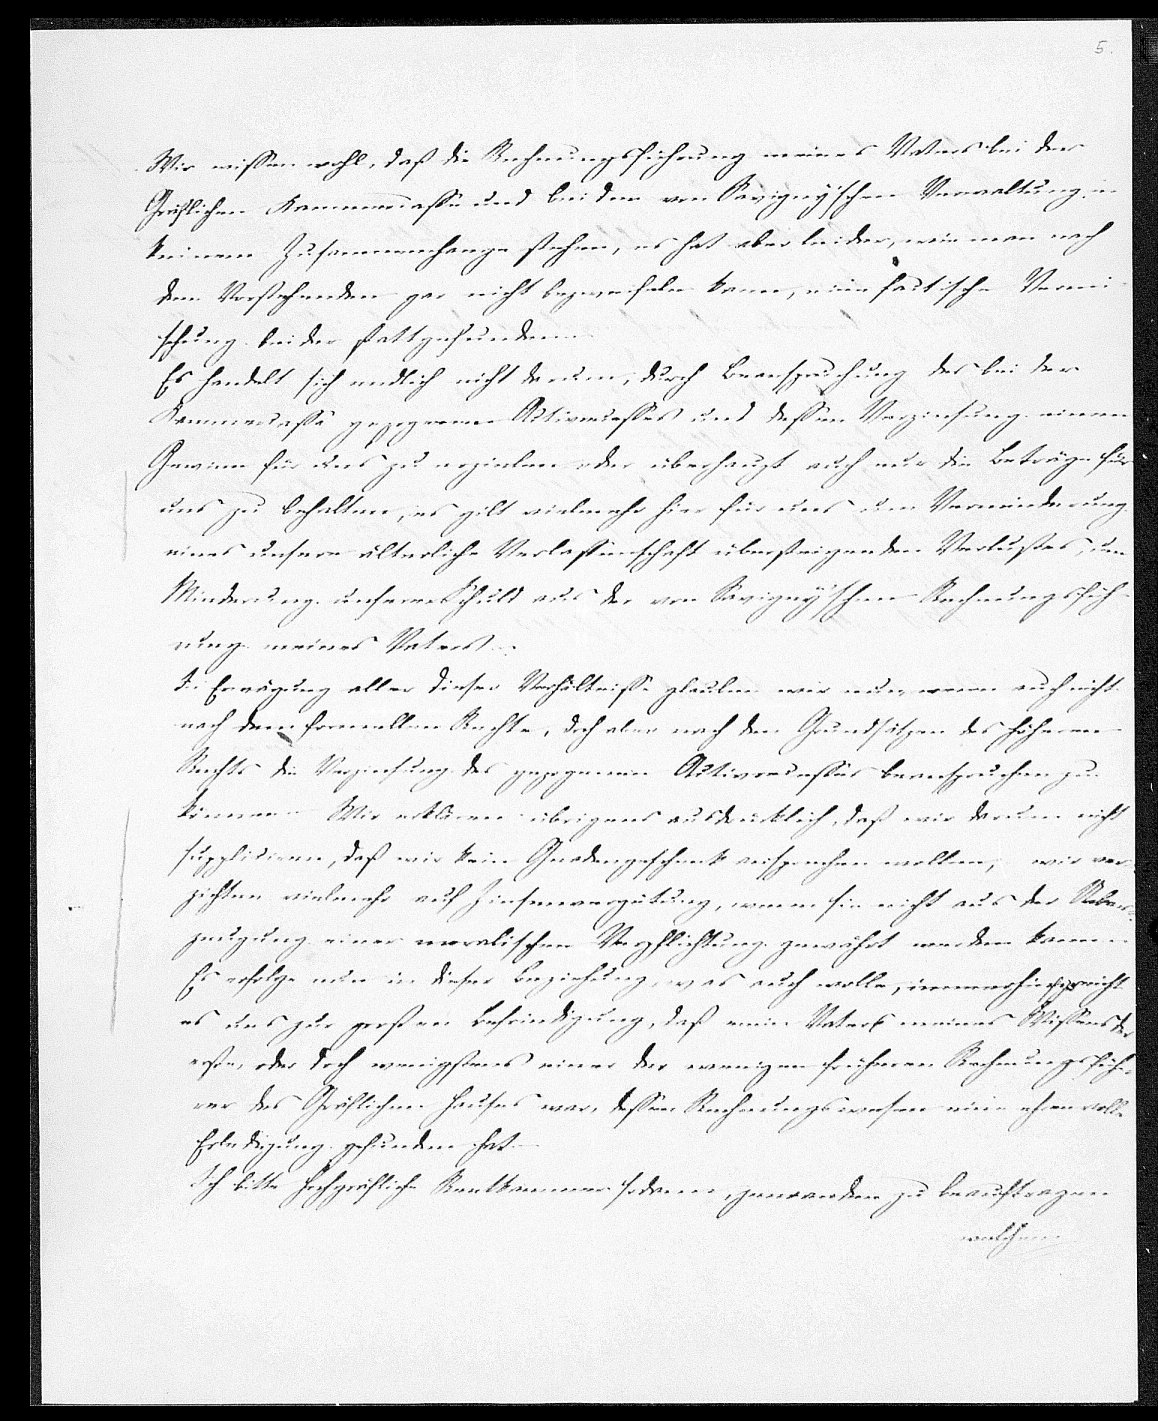 5.
Wir wissen wohl, daß die Rechnungsführung meines Vaters bei der
Gräflichen Kammercasse und bei der von Savignÿschen Verwaltung in
keinem Zusammenhange stehen, es hat aber leider, wie man nach
dem Vorstehenden gar nicht bezweifeln kann, eine factische Vermi-
schung beider stattgefunden.
Es handelt sich endlich nicht darum, durch Beanspruchung des bei der
Kammercasse gezogenen Activrecesses und dessen Verzinsung einen
Gewinn für uns zu erzielen oder überhaupt auch nur die Beträge für
uns zu behalten, es gilt vielmehr hier für uns um Verminderung
eines unsere älterliche Verlassenschaft übersteigenden Verlustes, um
Minderung unserer Schuld aus der von Savignÿschen Rechnungsfüh-
rung meines Vaters.
In Erwägung aller dieser Verhältnisse glauben wir nun, wenn auch nicht
nach dem formellen Rechte, doch aber nach den Grundsätzen des höheren
Rechts die Verzinsung des gezogenen Activrecesses beanspruchen zu
können. Wir erklären übrigens ausdrücklich, daß wir darum nicht
suppliciren, daß wir kein Gnadengeschenk ansprechen wollen, wir ver-
zichten vielmehr auf Zinsenvergütung, wenn sie nicht aus der Ueber-
zeugung einer moralischen Verpflichtung gewährt werden kann.
Es erfolge nun in dieser Beziehung, was auch wolle, immerhin gereicht
es uns zur großen Befriedigung, daß mein Vater meines Wissens der
erste, oder doch wenigstens einer der wenigen früheren Rechnungsfüh-
rer des Gräflichen Hauses war, dessen Rechnungswesen eine ehrenvolle
Erledigung gefunden hat.
Ich bitte Hochgräfliche Rentkammer sodann, jemanden zu beauftragen
welchem